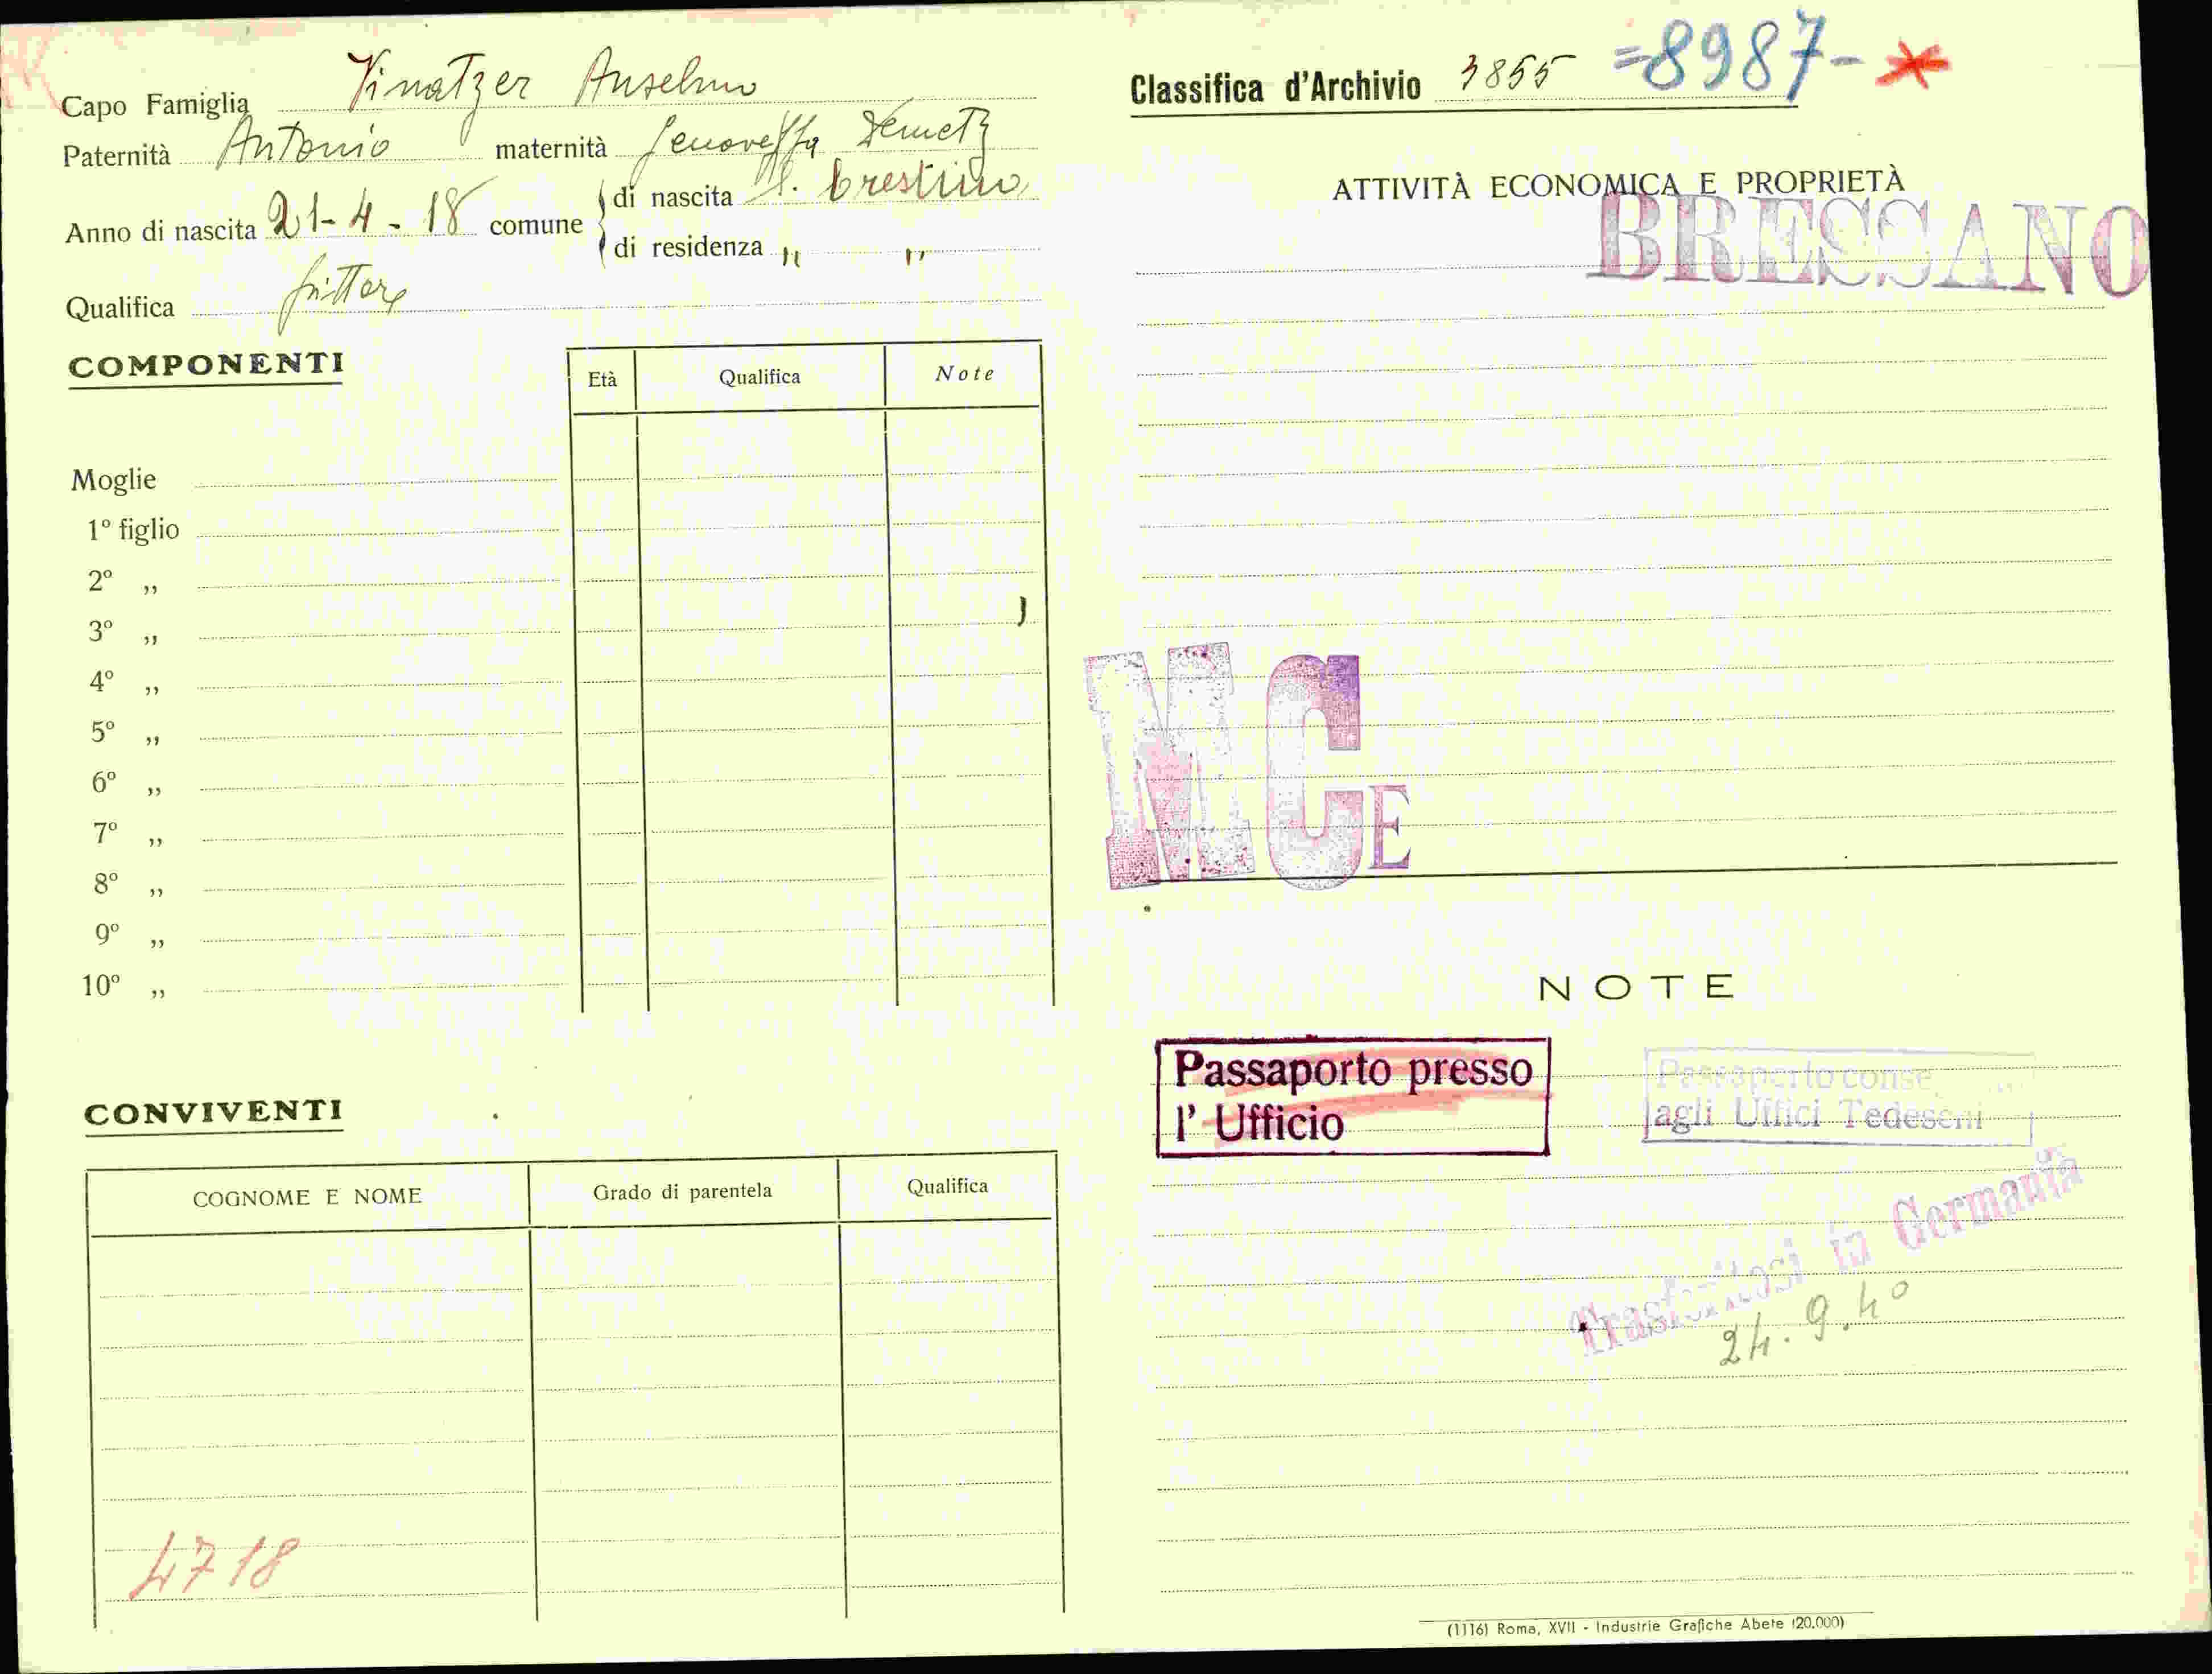 Capo Famiglia Vinatzer Anselmo
Paternità Antonio maternità Genoveffa Demetz
Anno di nascita 21-4-18 comune di nascita S. Crestino
di residenza „ „
Qualifica pittore
COMPONENTI
Età Qualifica Note
Moglie
1º figlio
2º „
3º „
4º „
5º „
6º „
7º „
8º „
9º „
10º „
CONVIVENTI
COGNOME E NOME Grado di parentela Qualifica
4718
Classifica d'Archivio 3855 =8987-
ATTIVITÀ ECONOMICA E PROPRIETÀ
BRESSANO
MCE
NOTE
Passaporto presso
l' Ufficio
Passaporto conse
agli Uffici Tedeschi
Trasferitosi in Germania
24.9.40
(1116) Roma, XVII - Industrie Grafiche Abete (20.000)